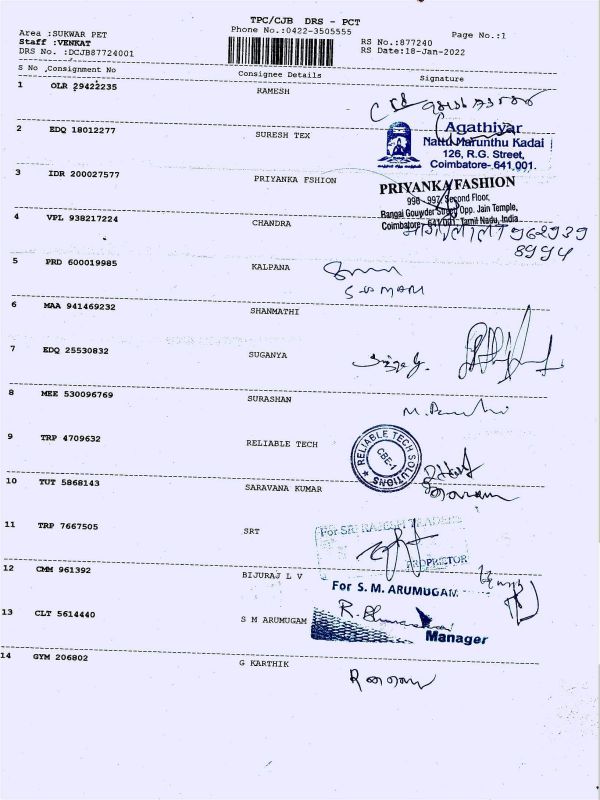 TPC/CJB DRS - PCT
Area :SUKWAR PET
Phone No.:0422-3505555
Page No.:1
Staff :VENKAT
RS No.:877240
DRS No. :DCJB87724001
RS Date:18-Jan-2022
S No ,Consignment No Consignee Details Signature
1 OLR 29422235 RAMESH
2 EDQ 18012277 SURESH TEX
Agathiyar
Nattu Marunthu Kadai
126, R.G. Street,
Coimbatore- 641,001.
3 IDR 200027577 PRIYANKA FSHION
PRIYANKA FASHION
996 - 997, Second Floor,
Rangai Gouwder Street Opp. Jain Temple,
Coimbatore - 641 001. Tamil Nadu, India
4 VPL 938217224 CHANDRA
962939
8994
5 PRD 600019985 KALPANA
6 MAA 941469232 SHANMATHI
7 EDQ 25530832 SUGANYA
8 MEE 530096769 SURASHAN
9 TRP 4709632 RELIABLE TECH
RELIABLE TECH SOLUTIONS
CBE-1
10 TUT 5868143 SARAVANA KUMAR
11 TRP 7667505 SRT
For SRI RAJESH TRADERS
PROPRIETOR
12 CMM 961392 BIJURAJ L V
For S. M. ARUMUGAM
13 CLT 5614440 S M ARUMUGAM
Manager
14 GYM 206802 G KARTHIK